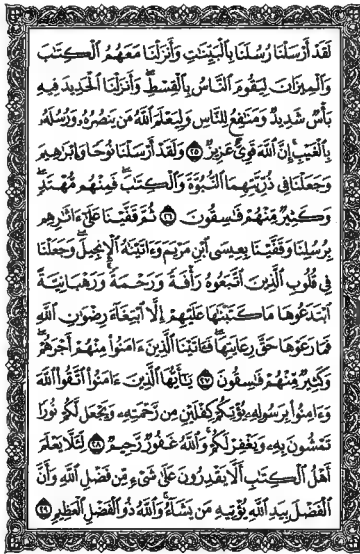 لَقَدْ أَرْسَلْنَا رُسُلَنَا بِالْبَيِّنَاتِ وَأَنزَلْنَا مَعَهُمُ الْكِتَابَ
وَالْمِيزَانَ لِيَقُومَ النَّاسُ بِالْقِسْطِ ۖ وَأَنزَلْنَا الْحَدِيدَ فِيهِ
بَأْسٌ شَدِيدٌ وَمَنَافِعُ لِلنَّاسِ وَلِيَعْلَمَ اللَّهُ مَن يَنصُرُهُ وَرُسُلَهُ
بِالْغَيْبِ إِنَّ اللَّهَ قَوِيٌّ عَزِيزٌ ٢٥ وَلَقَدْ أَرْسَلْنَا نُوحًا وَإِبْرَاهِيمَ
وَجَعَلْنَا فِي ذُرِّيَّتِهِمَا النُّبُوَّةَ وَالْكِتَابَ ۖ فَمِنْهُم مُّهْتَدٍ ۖ
وَكَثِيرٌ مِّنْهُمْ فَاسِقُونَ ٢٦ ثُمَّ قَفَّيْنَا عَلَىٰ آثَارِهِم
بِرُسُلِنَا وَقَفَّيْنَا بِعِيسَى ابْنِ مَرْيَمَ وَآتَيْنَاهُ الْإِنجِيلَ ۖ وَجَعَلْنَا
فِي قُلُوبِ الَّذِينَ اتَّبَعُوهُ رَأْفَةً وَرَحْمَةً وَرَهْبَانِيَّةً
ابْتَدَعُوهَا مَا كَتَبْنَاهَا عَلَيْهِمْ إِلَّا ابْتِغَاءَ رِضْوَانِ اللَّهِ
فَمَا رَعَوْهَا حَقَّ رِعَايَتِهَا ۖ فَآتَيْنَا الَّذِينَ آمَنُوا مِنْهُمْ أَجْرَهُمْ ۖ
وَكَثِيرٌ مِّنْهُمْ فَاسِقُونَ ٢٧ يَا أَيُّهَا الَّذِينَ آمَنُوا اتَّقُوا اللَّهَ
وَآمِنُوا بِرَسُولِهِ يُؤْتِكُمْ كِفْلَيْنِ مِن رَّحْمَتِهِ وَيَجْعَل لَّكُمْ نُورًا
تَمْشُونَ بِهِ وَيَغْفِرْ لَكُمْ ۚ وَاللَّهُ غَفُورٌ رَّحِيمٌ ٢٨ لِّئَلَّا يَعْلَمَ
أَهْلُ الْكِتَابِ أَلَّا يَقْدِرُونَ عَلَىٰ شَيْءٍ مِّن فَضْلِ اللَّهِ وَأَنَّ
الْفَضْلَ بِيَدِ اللَّهِ يُؤْتِيهِ مَن يَشَاءُ ۚ وَاللَّهُ ذُو الْفَضْلِ الْعَظِيمِ ٢٩